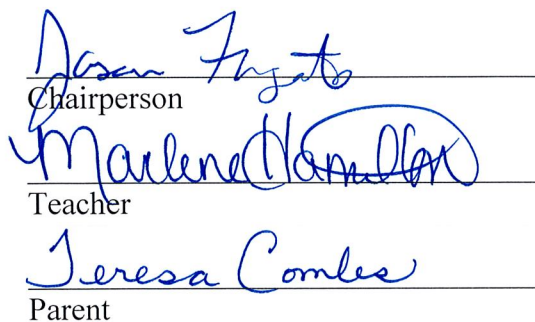 Jason Fugate
Chairperson
Marlene Hamilton
Teacher
Teresa Combs
Parent